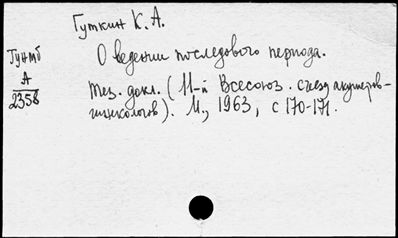 Гуткин К. А.
О ведении последового периода.
Тез. докл. (11-й Всесоюз. съезд акушеров-
гинекологов). М., 1963, с 170-171.
А
2358